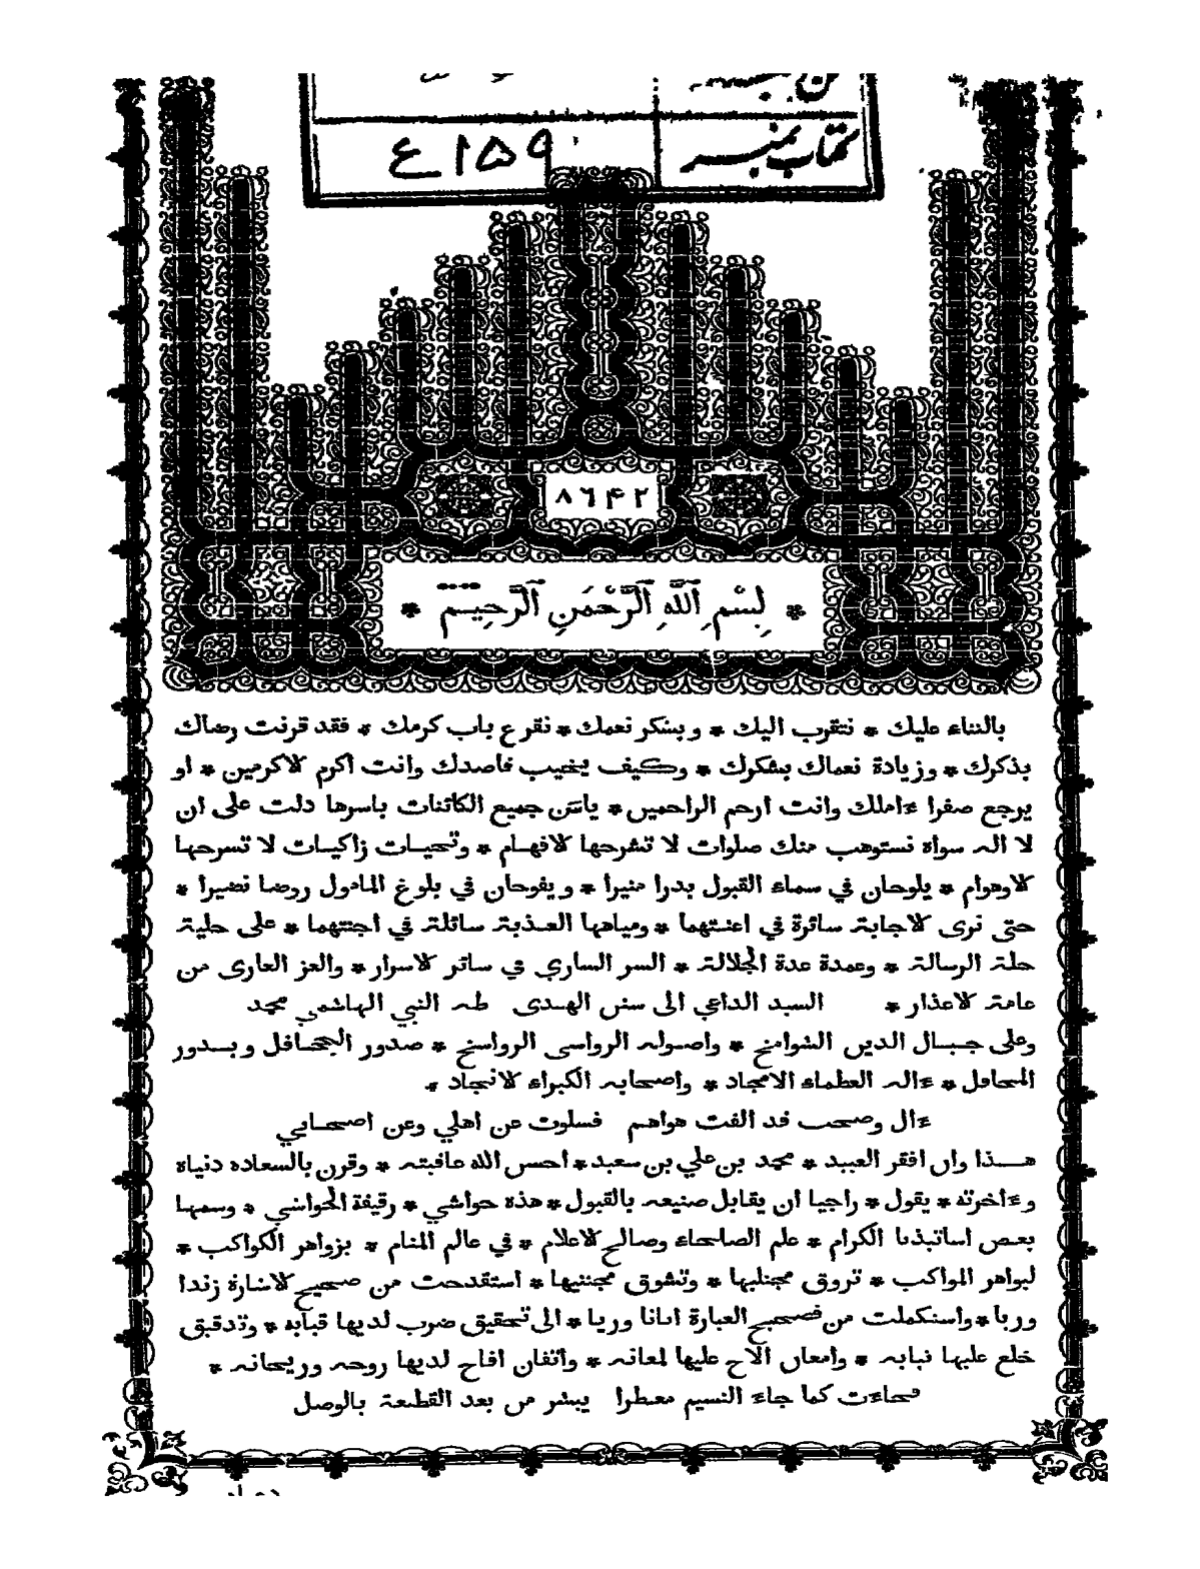 كتاب نمبر ١٥٩ ع
٨٦٤٢
* بِسْمِ اللَّهِ الرَّحْمَنِ الرَّحِيمِ *
بالثناء عليك * نتقرب اليك * وبشكر نعمك * نقرع باب كرمك * فقد قرنت رضاك
بذكرك * وزيادة نعماك بشكرك * وكيف يخيب قاصدك وانت اكرم الاكرمين * او
يرجع صفرا ءاملك وانت ارحم الراحمين * يامن جميع الكائنات باسرها دلت على ان
لا اله سواه نستوهب منك صلوات لا تشرحها الافهام * وتحيات زاكيات لا تسرحها
الاوهام * يلوحان في سماء القبول بدرا منيرا * ويفوحان في بلوغ المامول روضا نضيرا *
حتى نرى الاجابة سائرة في اعنتهما * ومياهها العذبة سائلة في اجنتهما * على حلية
حلة الرسالة * وعمدة عدة الجلالة * السر الساري في سائر الاسرار * والعز العارى من
عامة الاعذار * السيد الداعي الى سنن الهدى طه النبي الهاشمي محمد
وعلى جبال الدين الشوامخ * واصوله الرواسى الرواسخ * صدور الجحافل وبدور
المحافل * ءاله العظماء الامجاد * واصحابه الكبراء الانجاد *
ءال وصحب قد الفت هواهم فسلوت عن اهلي وعن اصحابي
هذا وان افقر العبيد * محمد بن علي بن سعيد * احسن الله عاقبته * وقرن بالسعاده دنياه
وءاخرته * يقول * راجيا ان يقابل صنيعه بالقبول * هذه حواشي * رقيقة الحواشي * وسمها
بعض اساتيذنا الكرام * علم الصلحاء وصالح الاعلام * في عالم المنام * بزواهر الكواكب *
لبواهر المواكب * تروق مجتليها * وتشوق مجتنيها * استقدحت من صحيح الاشارة زندا
وريا * واستكملت من فصيح العبارة اثاثا وريا * الى تحقيق ضرب لديها قبابه * وتدقيق
خلع عليها ثيابه * وامعان الاح عليها لمعانه * واتقان افاح لديها روحه وريحانه *
فجاءت كما جاء النسيم معطرا يبشر من بعد القطيعة بالوصل